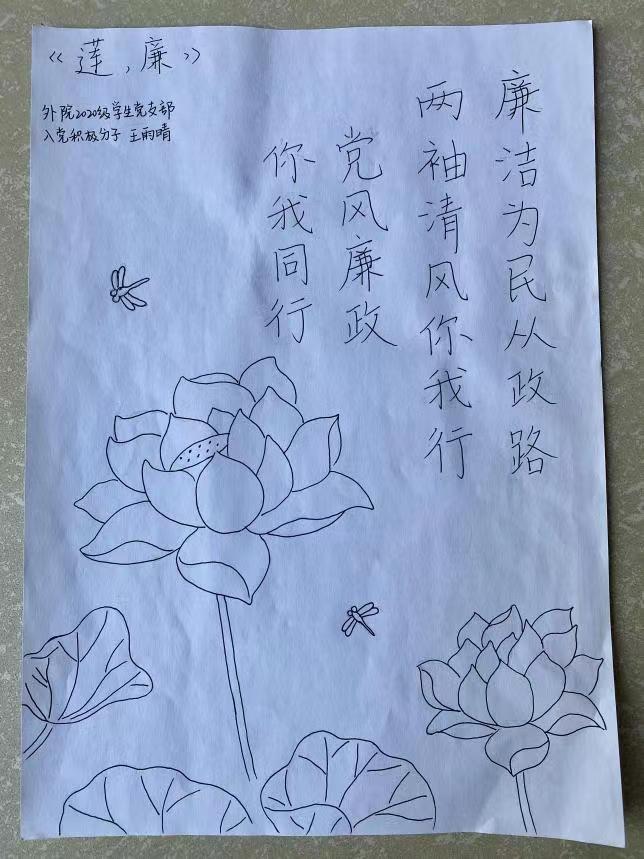 《莲,廉》
外院2020级学生党支部
入党积极分子 王雨晴
廉洁为民从政路
两袖清风你我行
党风廉政
你我同行